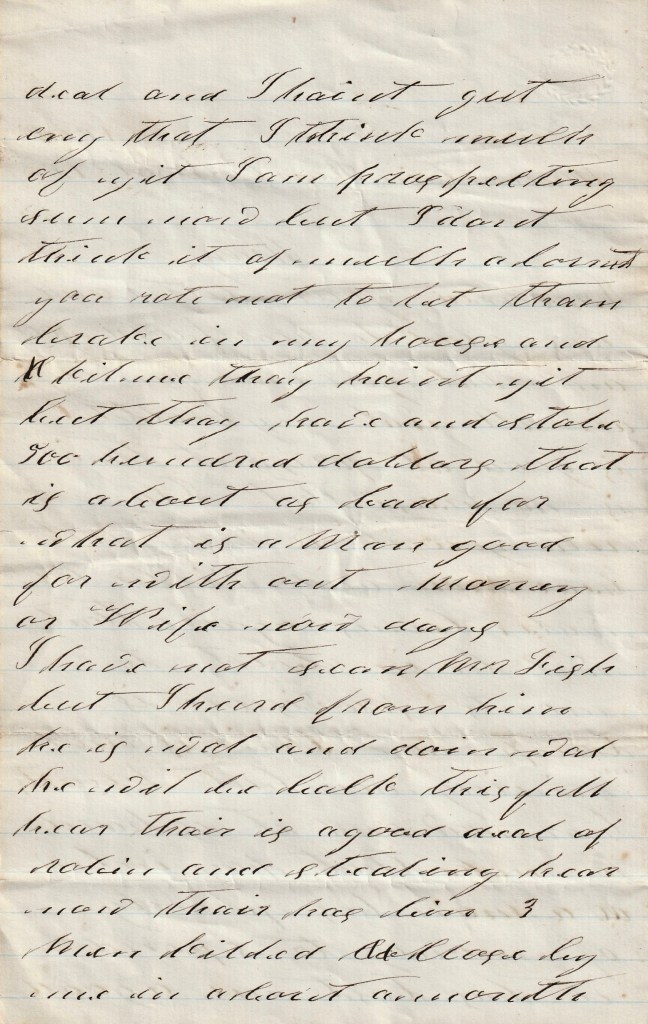 deal and I haint gut
eny that I think much
of yit I am prospecting
sum now but I dont
think it of much a
you rote not to let tham
brake in my house and
kil me thay haint yit
but thay have and stole
500 hundred dollars that
is about as bad for
what is a Man good
for with out Money
or Wife now days
I have not sean Mr Fish
but I heard from him
he is wal and doin wal
he wil be back this fall
hear thair is a good deal of
robin and stealing hear
now thair has bin 3
Men killed close by
me in about a month